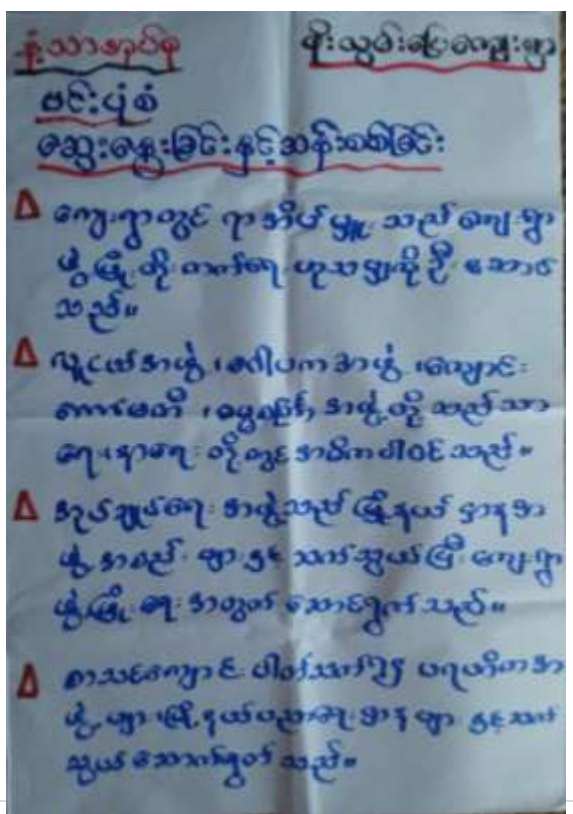 နံ့သာအုပ်စု မိုးသွမ်းမြေကျေးရွာ
ဗင်းပုံစံ
ဆွေးနွေးခြင်းနှင့်ဆန်းစစ်ခြင်း
Δ ကျေးရွာတွင် ရာအိမ်မှူး သည် ကျေးရွာ
ဖွံ့ဖြိုးတိုးတက်ရေး ဟူသမျှကိုဦးဆောင်
သည်။
Δ လူငယ်အဖွဲ့၊ ဂေါပကအဖွဲ့၊ ကျောင်း
ကော်မတီ၊ အဖွဲ့တို့သည်သာ
ရေး၊ နာရေးတို့တွင်အဓိကပါဝင်သည်။
Δ အုပ်ချုပ်ရေးအဖွဲ့သည် မြို့နယ်ဌာနအ
ဖွဲ့အစည်းများနှင့်ဆက်သွယ်ပြီးကျေးရွာ
ဖွံ့ဖြိုးရေးအတွက်ဆောင်ရွက်သည်။
Δ စာသင်ကျောင်း ပရဟိတအ
ဖွဲ့များ၊ မြို့နယ်ပညာရေးဌာနများနှင့်ဆက်
သွယ်ဆောင်ရွက်သည်။